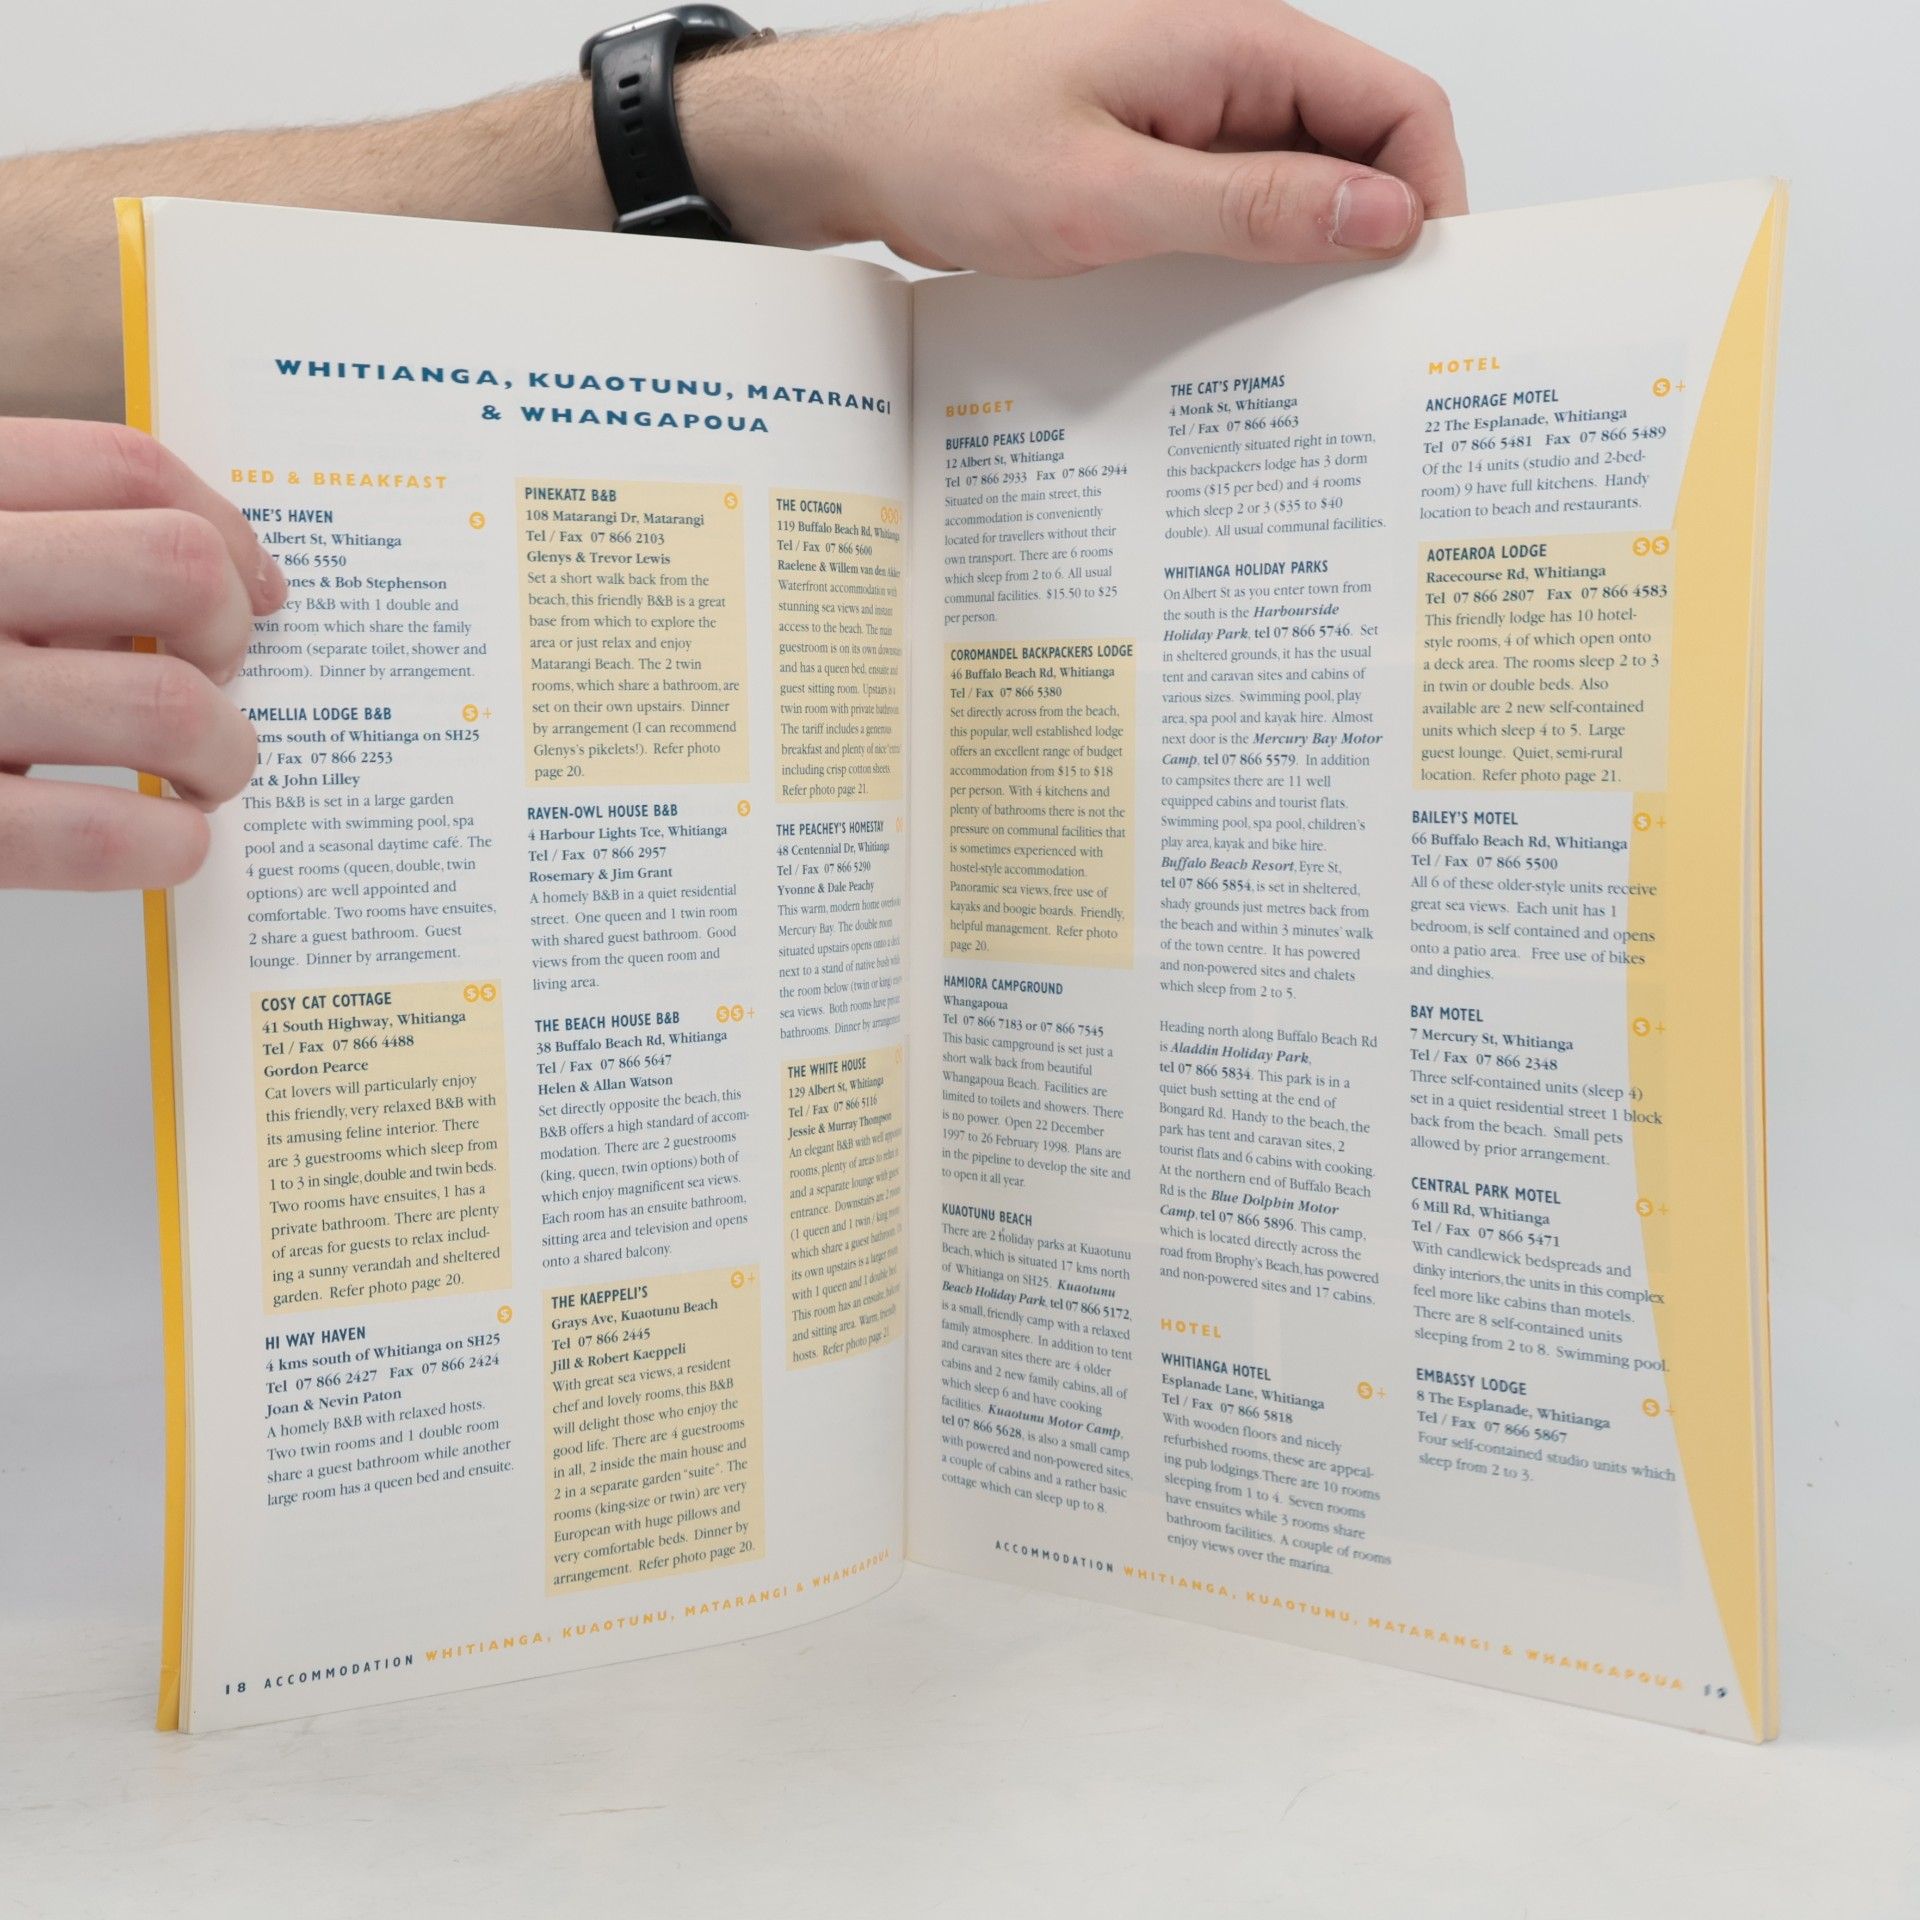 WHITIANGA, KUAOTUNU, MATARANGI
& WHANGAPOUA
BED & BREAKFAST
NNE'S HAVEN
Albert St, Whitianga
7 866 5550
ones & Bob Stephenson
ey B&B with 1 double and
win room which share the family
athroom (separate toilet, shower and
bathroom). Dinner by arrangement.
CAMELLIA LODGE B&B
kms south of Whitianga on SH25
l / Fax 07 866 2253
at & John Lilley
This B&B is set in a large garden
complete with swimming pool, spa
pool and a seasonal daytime café. The
4 guest rooms (queen, double, twin
options) are well appointed and
comfortable. Two rooms have ensuites,
2 share a guest bathroom. Guest
lounge. Dinner by arrangement.
COSY CAT COTTAGE
41 South Highway, Whitianga
Tel / Fax 07 866 4488
Gordon Pearce
Cat lovers will particularly enjoy
this friendly, very relaxed B&B with
its amusing feline interior. There
are 3 guestrooms which sleep from
1 to 3 in single, double and twin beds.
Two rooms have ensuites, 1 has a
private bathroom. There are plenty
of areas for guests to relax includ-
ing a sunny verandah and sheltered
garden. Refer photo page 20.
HI WAY HAVEN
4 kms south of Whitianga on SH25
Tel 07 866 2427 Fax 07 866 2424
Joan & Nevin Paton
A homely B&B with relaxed hosts.
Two twin rooms and 1 double room
share a guest bathroom while another
large room has a queen bed and ensuite.
PINEKATZ B&B
108 Matarangi Dr, Matarangi
Tel / Fax 07 866 2103
Glenys & Trevor Lewis
Set a short walk back from the
beach, this friendly B&B is a great
base from which to explore the
area or just relax and enjoy
Matarangi Beach. The 2 twin
rooms, which share a bathroom, are
set on their own upstairs. Dinner
by arrangement (I can recommend
Glenys's pikelets!). Refer photo
page 20.
RAVEN-OWL HOUSE B&B
4 Harbour Lights Tce, Whitianga
Tel / Fax 07 866 2957
Rosemary & Jim Grant
A homely B&B in a quiet residential
street. One queen and 1 twin room
with shared guest bathroom. Good
views from the queen room and
living area.
THE BEACH HOUSE B&B
38 Buffalo Beach Rd, Whitianga
Tel / Fax 07 866 5647
Helen & Allan Watson
Set directly opposite the beach, this
B&B offers a high standard of accom-
modation. There are 2 guestrooms
(king, queen, twin options) both of
which enjoy magnificent sea views.
Each room has an ensuite bathroom,
sitting area and television and opens
onto a shared balcony.
THE KAEPPELI'S
Grays Ave, Kuaotunu Beach
Tel 07 866 2445
Jill & Robert Kaeppeli
With great sea views, a resident
chef and lovely rooms, this B&B
will delight those who enjoy the
good life. There are 4 guestrooms
in all, 2 inside the main house and
2 in a separate garden "suite". The
rooms (king-size or twin) are very
European with huge pillows and
very comfortable beds. Dinner by
arrangement. Refer photo page 20.
THE OCTAGON
119 Buffalo Beach Rd, Whitianga
Tel / Fax 07 866 5600
Raelene & Willem van den Akker
Waterfront accommodation with
stunning sea views and instant
access to the beach. The main
guestroom is on its own downstairs
and has a queen bed, ensuite and
guest sitting room. Upstairs is a
twin room with private bathroom.
The tariff includes a generous
breakfast and plenty of nice 'extras'
including crisp cotton sheets.
Refer photo page 21.
THE PEACHEY'S HOMESTAY
48 Centennial Dr, Whitianga
Tel / Fax 07 866 5290
Yvonne & Dale Peachy
This warm, modern home overlooks
Mercury Bay. The double room
situated upstairs opens onto a deck
next to a stand of native bush with
the room below (twin or king)
sea views. Both rooms have private
bathrooms. Dinner by arrangement
THE WHITE HOUSE
129 Albert St, Whitianga
Tel / Fax 07 866 5116
Jessie & Murray Thompson
An elegant B&B with well appointed
rooms, plenty of areas to relax in
and a separate lounge with guest
entrance. Downstairs are 2 rooms
(1 queen and 1 twin / king room)
which share a guest bathroom.
its own upstairs is a larger room
with 1 queen and 1 double bed
This room has an ensuite,
and sitting area. Warm, friendly
hosts. Refer photo page 21
18 ACCOMMODATION WHITIANGA, KUAOTUNU, MATARANGI & WHANGAPOUA
BUDGET
BUFFALO PEAKS LODGE
12 Albert St, Whitianga
Tel 07 866 2933 Fax 07 866 2944
Situated on the main street, this
accommodation is conveniently
located for travellers without their
own transport. There are 6 rooms
which sleep from 2 to 6. All usual
communal facilities. $15.50 to $25
per person.
COROMANDEL BACKPACKERS LODGE
46 Buffalo Beach Rd, Whitianga
Tel / Fax 07 866 5380
Set directly across from the beach,
this popular, well established lodge
offers an excellent range of budget
accommodation from $15 to $18
per person. With 4 kitchens and
plenty of bathrooms there is not the
pressure on communal facilities that
is sometimes experienced with
hostel-style accommodation.
Panoramic sea views, free use of
kayaks and boogie boards. Friendly,
helpful management. Refer photo
page 20.
HAMIORA CAMPGROUND
Whangapoua
Tel 07 866 7183 or 07 866 7545
This basic campground is set just a
short walk back from beautiful
Whangapoua Beach. Facilities are
limited to toilets and showers. There
is no power. Open 22 December
1997 to 26 February 1998. Plans are
in the pipeline to develop the site and
to open it all year.
KUAOTUNU BEACH
There are 2 holiday parks at Kuaotunu
Beach, which is situated 17 kms north
of Whitianga on SH25. Kuaotunu
Beach Holiday Park, tel 07 866 5172,
is a small, friendly camp with a relaxed
family atmosphere. In addition to tent
and caravan sites there are 4 older
cabins and 2 new family cabins, all of
which sleep 6 and have cooking
facilities. Kuaotunu Motor Camp,
tel 07 866 5628, is also a small camp
with powered and non-powered sites,
a couple of cabins and a rather basic
cottage which can sleep up to 8.
THE CAT'S PYJAMAS
4 Monk St, Whitianga
Tel / Fax 07 866 4663
Conveniently situated right in town,
this backpackers lodge has 3 dorm
rooms ($15 per bed) and 4 rooms
which sleep 2 or 3 ($35 to $40
double). All usual communal facilities.
WHITIANGA HOLIDAY PARKS
On Albert St as you enter town from
the south is the Harbourside
Holiday Park, tel 07 866 5746. Set
in sheltered grounds, it has the usual
tent and caravan sites and cabins of
various sizes. Swimming pool, play
area, spa pool and kayak hire. Almost
next door is the Mercury Bay Motor
Camp, tel 07 866 5579. In addition
to campsites there are 11 well
equipped cabins and tourist flats.
Swimming pool, spa pool, children's
play area, kayak and bike hire.
Buffalo Beach Resort, Eyre St,
tel 07 866 5854, is set in sheltered,
shady grounds just metres back from
the beach and within 3 minutes' walk
of the town centre. It has powered
and non-powered sites and chalets
which sleep from 2 to 5.
Heading north along Buffalo Beach Rd
is Aladdin Holiday Park,
tel 07 866 5834. This park is in a
quiet bush setting at the end of
Bongard Rd. Handy to the beach, the
park has tent and caravan sites, 2
tourist flats and 6 cabins with cooking.
At the northern end of Buffalo Beach
Rd is the Blue Dolphin Motor
Camp, tel 07 866 5896. This camp,
which is located directly across the
road from Brophy's Beach, has powered
and non-powered sites and 17 cabins.
HOTEL
WHITIANGA HOTEL
Esplanade Lane, Whitianga
Tel / Fax 07 866 5818
With wooden floors and nicely
refurbished rooms, these are appeal-
ing pub lodgings. There are 10 rooms
sleeping from 1 to 4. Seven rooms
have ensuites while 3 rooms share
bathroom facilities. A couple of rooms
enjoy views over the marina.
MOTEL
ANCHORAGE MOTEL
22 The Esplanade, Whitianga
Tel 07 866 5481 Fax 07 866 5489
Of the 14 units (studio and 2-bed-
room) 9 have full kitchens. Handy
location to beach and restaurants.
AOTEAROA LODGE
Racecourse Rd, Whitianga
Tel 07 866 2807 Fax 07 866 4583
This friendly lodge has 10 hotel-
style rooms, 4 of which open onto
a deck area. The rooms sleep 2 to 3
in twin or double beds. Also
available are 2 new self-contained
units which sleep 4 to 5. Large
guest lounge. Quiet, semi-rural
location. Refer photo page 21.
BAILEY'S MOTEL
66 Buffalo Beach Rd, Whitianga
Tel / Fax 07 866 5500
All 6 of these older-style units receive
great sea views. Each unit has 1
bedroom, is self contained and opens
onto a patio area. Free use of bikes
and dinghies.
BAY MOTEL
7 Mercury St, Whitianga
Tel / Fax 07 866 2348
Three self-contained units (sleep 4)
set in a quiet residential street 1 block
back from the beach. Small pets
allowed by prior arrangement.
CENTRAL PARK MOTEL
6 Mill Rd, Whitianga
Tel / Fax 07 866 5471
With candlewick bedspreads and
dinky interiors, the units in this complex
feel more like cabins than motels.
There are 8 self-contained units
sleeping from 2 to 8. Swimming pool.
EMBASSY LODGE
8 The Esplanade, Whitianga
Tel / Fax 07 866 5867
Four self-contained studio units which
sleep from 2 to 3.
ACCOMMODATION WHITIANGA, KUAOTUNU, MATARANGI & WHANGAPOUA 19